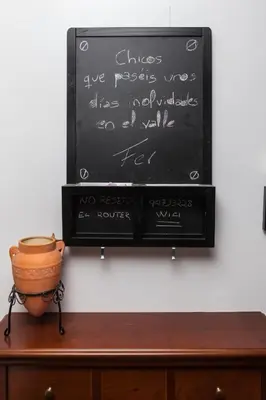 Chicos
que paséis unos
días inolvidables
en el valle
Fer
NO RESETEAR
EL ROUTER
WIFI